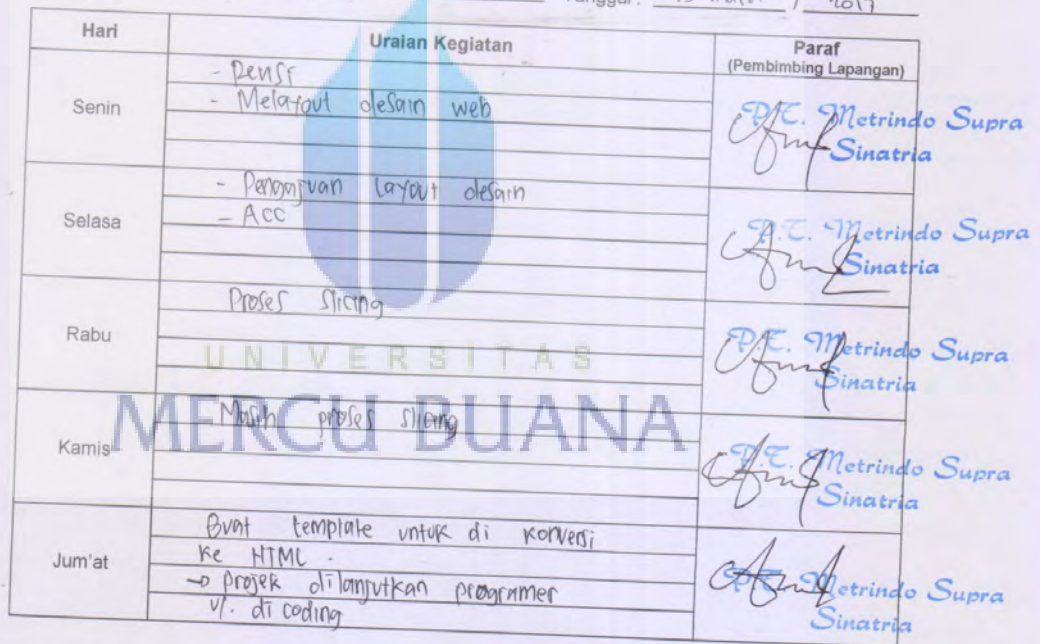 2017
Hari
Uraian Kegiatan
Paraf
(Pembimbing Lapangan)
Senin
- Revisi
- Melayout desain web
P.T. Metrindo Supra
Sinatria
Selasa
- Pengajuan layout desain
- ACC
P.T. Metrindo Supra
Sinatria
Rabu
Proses slicing
P.T. Metrindo Supra
Sinatria
UNIVERSITAS
MERCU BUANA
Kamis
Masih proses slicing
P.T. Metrindo Supra
Sinatria
Jum'at
Buat template untuk di konversi
ke HTML .
→ projek dilanjutkan programer
u/. di coding
P.T. Metrindo Supra
Sinatria